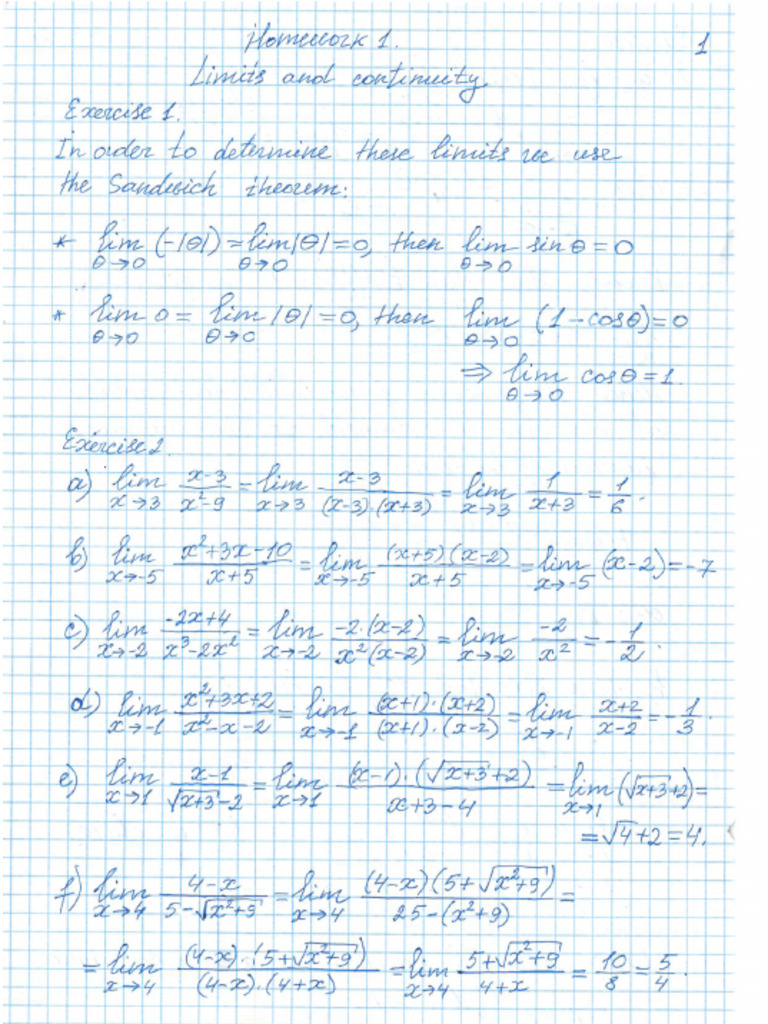 Homework 1. 1
Limits and continuity
Exercise 1.
In order to determine these limits we use
the Sandwich theorem:
* lim_{θ→0} (-|θ|) = lim_{θ→0} |θ| = 0, then lim_{θ→0} sin θ = 0
* lim_{θ→0} 0 = lim_{θ→0} |θ| = 0, then lim_{θ→0} (1-cosθ) = 0
⇒ lim_{θ→0} cosθ = 1.
Exercise 2
a) lim_{x→3} (x-3)/(x²-9) = lim_{x→3} (x-3)/((x-3)·(x+3)) = lim_{x→3} 1/(x+3) = 1/6.
b) lim_{x→-5} (x²+3x-10)/(x+5) = lim_{x→-5} ((x+5)(x-2))/(x+5) = lim_{x→-5} (x-2) = -7
c) lim_{x→-2} (-2x+4)/(x³-2x²) = lim_{x→-2} (-2·(x-2))/(x²(x-2)) = lim_{x→-2} -2/x² = -1/2.
d) lim_{x→-1} (x²+3x+2)/(x²-x-2) = lim_{x→-1} ((x+1)·(x+2))/((x+1)·(x-2)) = lim_{x→-1} (x+2)/(x-2) = -1/3.
e) lim_{x→1} (x-1)/(√(x+3)-2) = lim_{x→1} ((x-1)·(√(x+3)+2))/(x+3-4) = lim_{x→1} (√(x+3)+2) =
= √4+2 = 4.
f) lim_{x→4} (4-x)/(5-√(x²+9)) = lim_{x→4} ((4-x)(5+√(x²+9)))/(25-(x²+9)) =
= lim_{x→4} ((4-x)·(5+√(x²+9)))/((4-x)·(4+x)) = lim_{x→4} (5+√(x²+9))/(4+x) = 10/8 = 5/4.